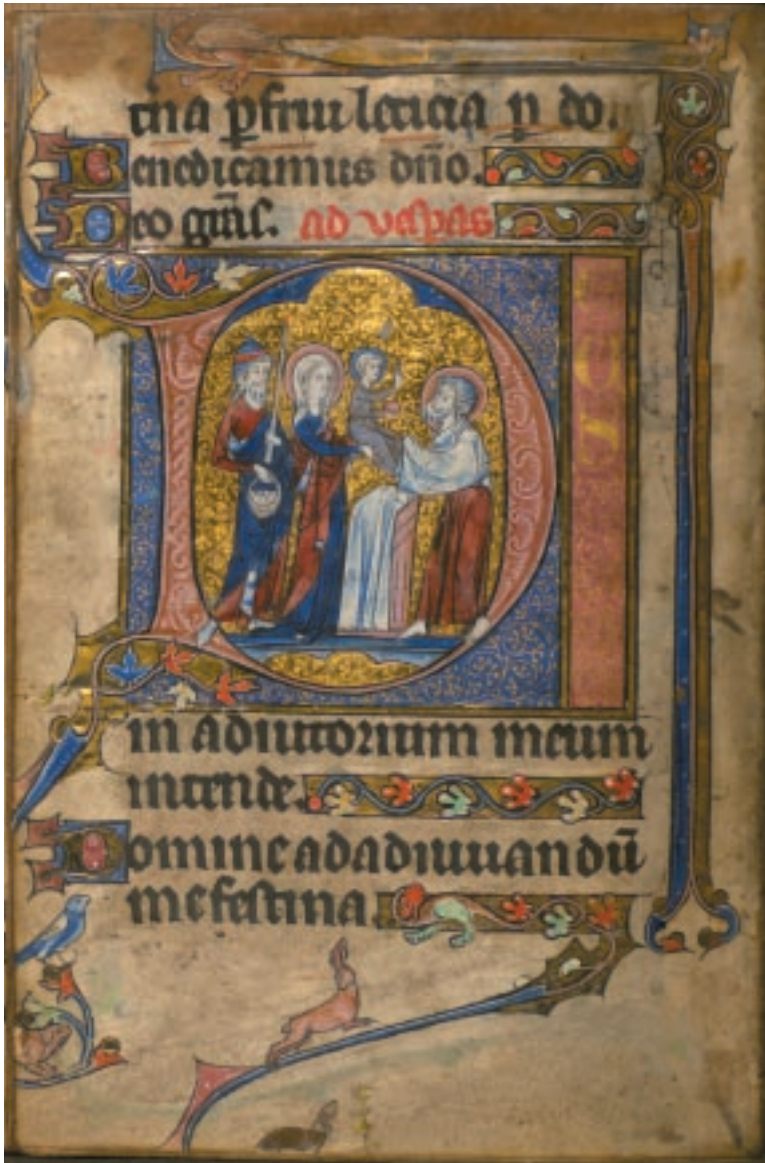 tna p̲frui leticia p do.
Benedicamus dño.
Deo gr̃as. ad vesp̲as
D
in adiutorium meum
intende.
Domine ad adiuuandū
me festina.